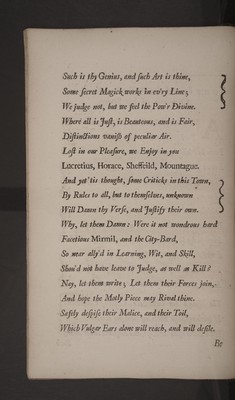 Such is thy Genius, and such Art is thine,
Some secret Magick works in ev'ry Line;
We judge not, but we feel the Pow'r Divine.
Where all is Just, is Beauteous, and is Fair,
Distinctions vanish of peculiar Air.
Lost in our Pleasure, we Enjoy in you
Lucretius, Horace, Sheffeild, Mountague.
And yet 'tis thought, some Criticks in this Town,
By Rules to all, but to themselves, unknown
Will Damn thy Verse, and Justify their own.
Why, let them Damn: Were it not wondrous hard
Facetious Mirmil, and the City-Bard,
So near ally'd in Learning, Wit, and Skill,
Shou'd not have leave to Judge, as well as Kill?
Nay, let them write; Let them their Forces join,
And hope the Motly Piece may Rival thine.
Safely despise their Malice, and their Toil,
Which Vulgar Ears alone will reach, and will defile.
Be